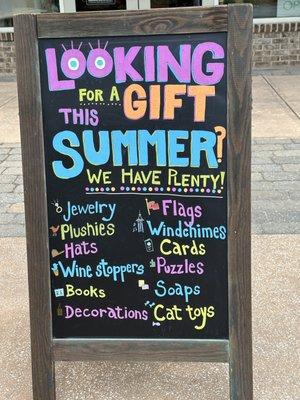 LOOKING
FOR A GIFT
THIS
SUMMER?
WE HAVE PLENTY!
Jewelry
Plushies
Hats
Wine stoppers
Books
Decorations
Flags
Windchimes
Cards
Puzzles
Soaps
Cat toys